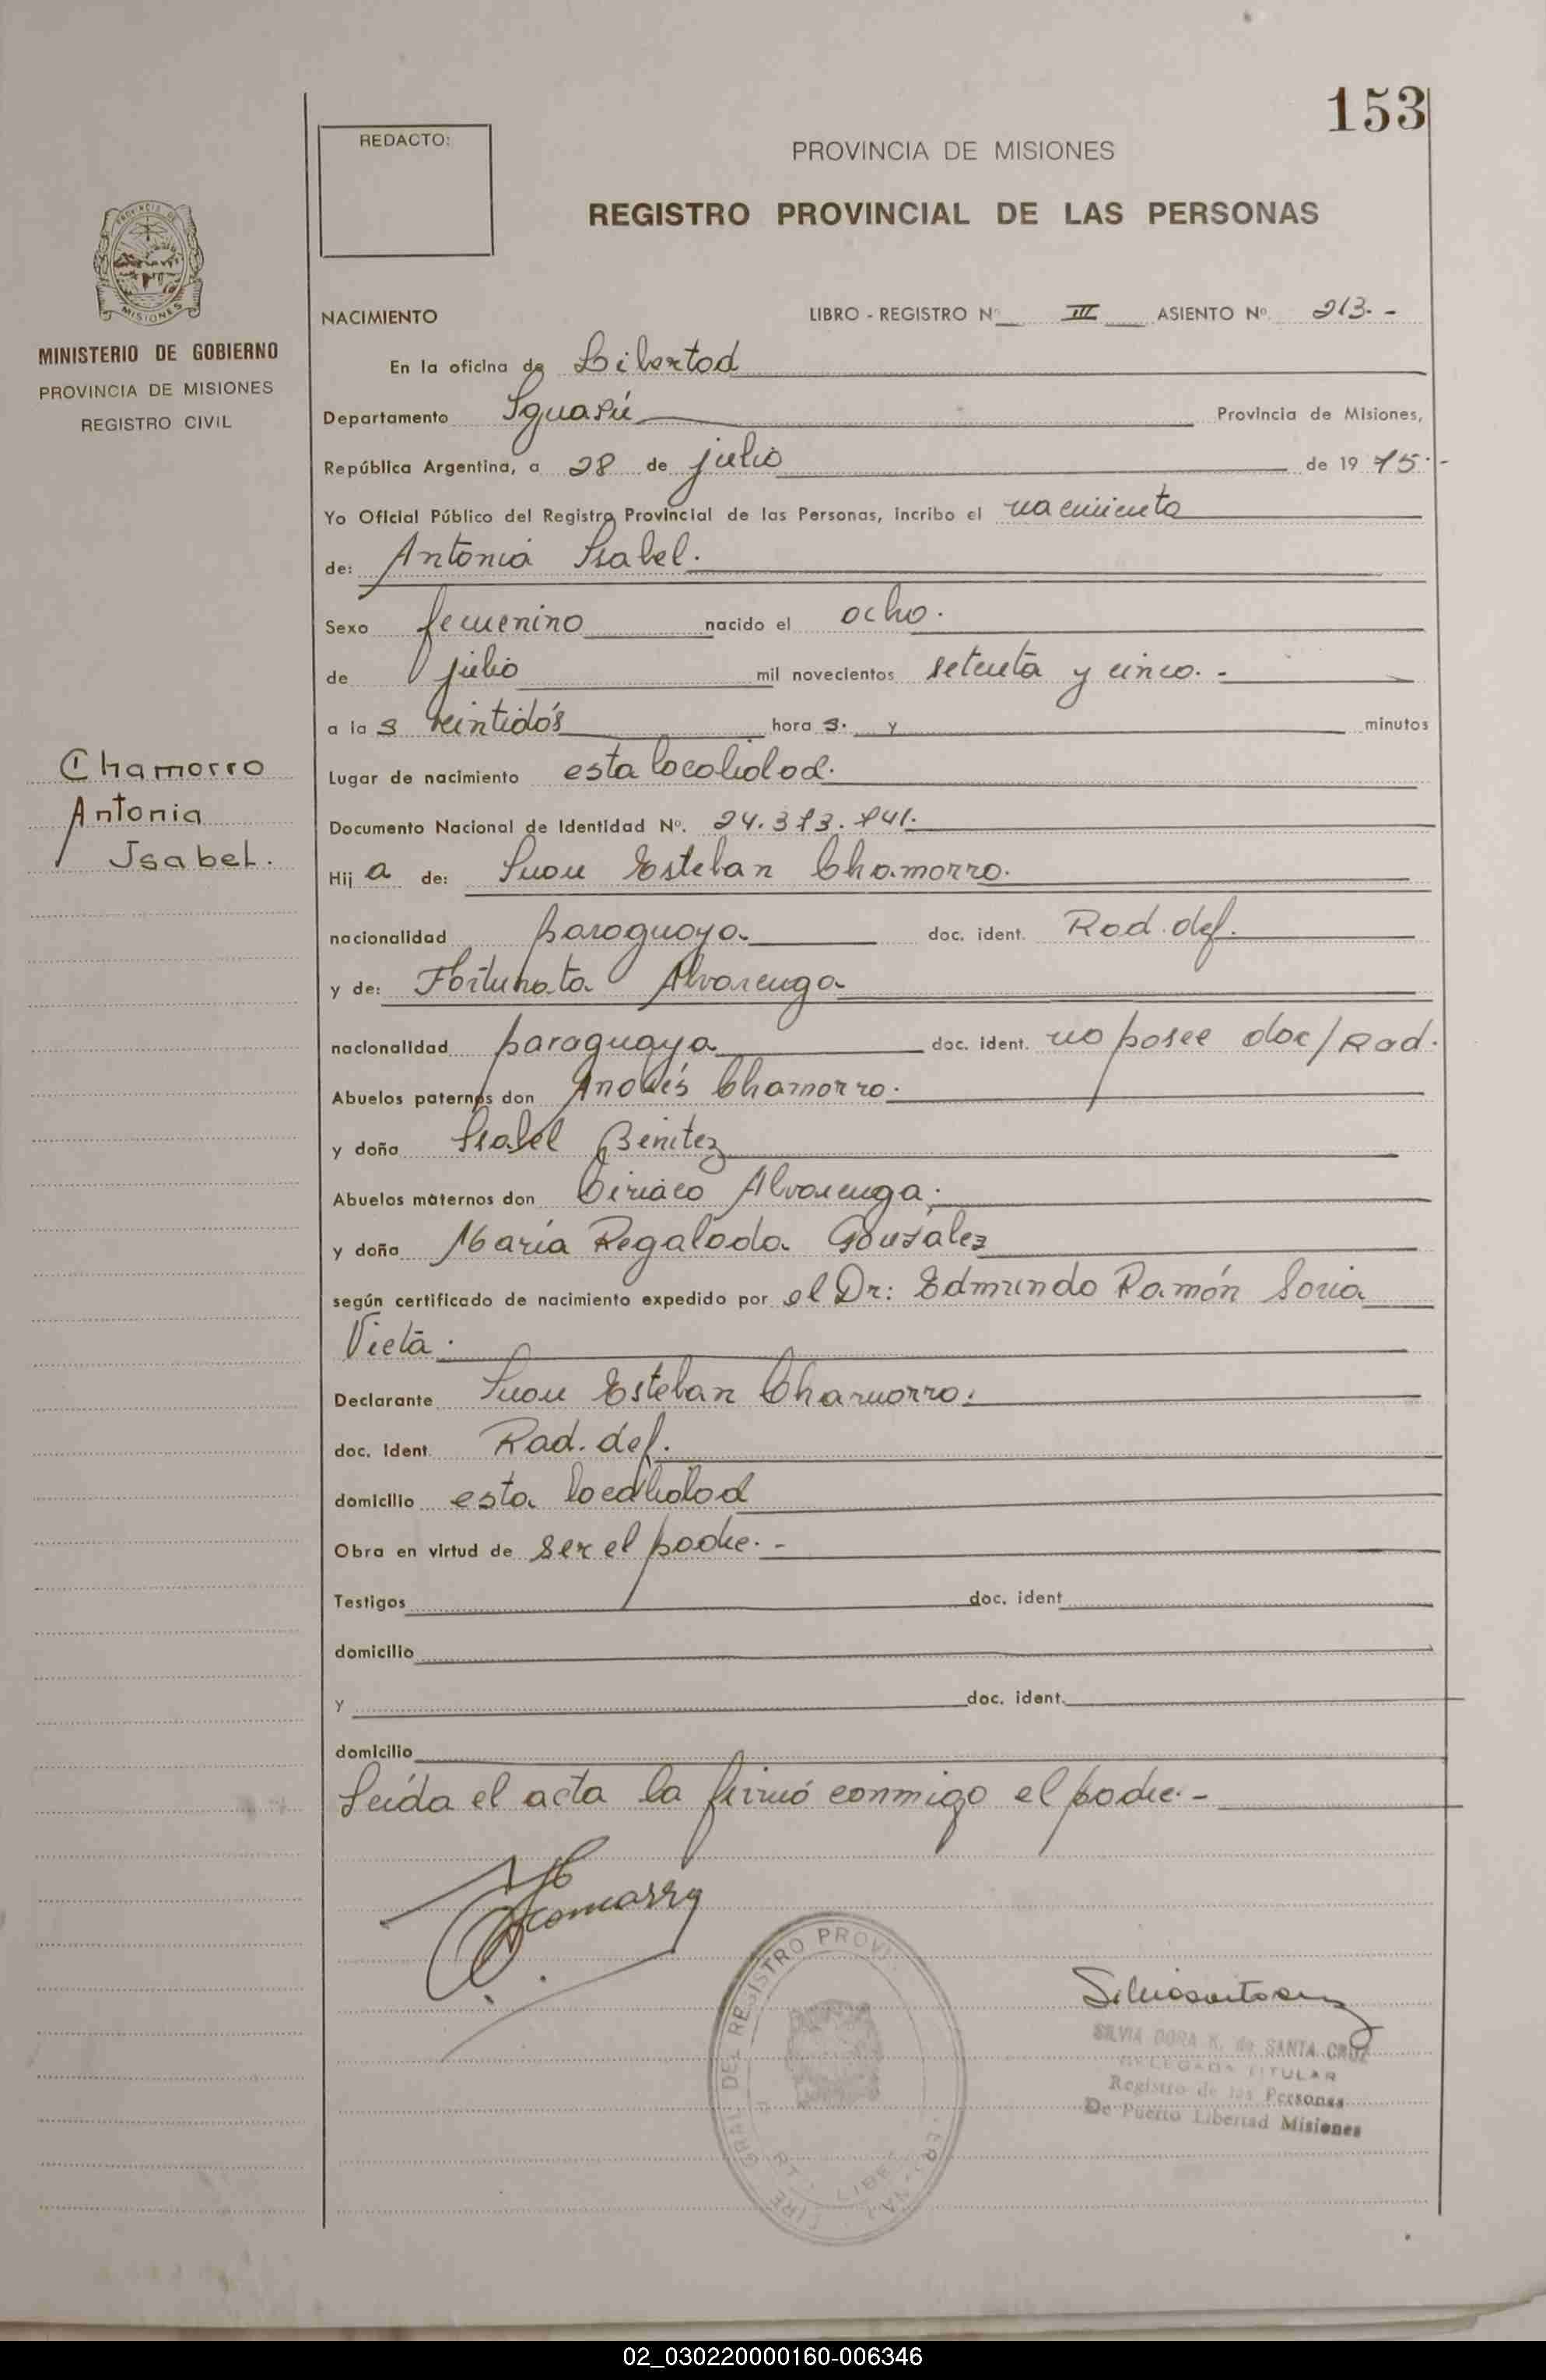 153
REDACTO:
PROVINCIA DE MISIONES
REGISTRO PROVINCIAL DE LAS PERSONAS
MISIONES
MINISTERIO DE GOBIERNO
PROVINCIA DE MISIONES
REGISTRO CIVIL
NACIMIENTO LIBRO - REGISTRO Nº III ASIENTO Nº 213.-
En la oficina de Libertad
Departamento Iguasú Provincia de Misiones,
República Argentina, a 28 de julio de 1975.-
Yo Oficial Público del Registro Provincial de las Personas, incribo el nacimiento
de: Antonia Isabel.
Sexo femenino nacido el ocho.
de julio mil novecientos setenta y cinco.-
a la s veintidós hora s. y minutos
Chamorro
Antonia
Isabel.
Lugar de nacimiento esta localidad.
Documento Nacional de Identidad Nº.
Hij a de: Juan Esteban Chamorro.
nacionalidad paraguaya doc. ident. Rad. def.
y de: Fortunata Alvarenga
nacionalidad paraguaya doc. ident. no posee doc/Rad.
Abuelos paternos don Andrés Chamorro.
y doña Isabel Benitez
Abuelos maternos don Ciriaco Alvarenga.
y doña María Regalada González
según certificado de nacimiento expedido por el Dr: Edmundo Ramón Soria
Vieta.
Declarante Juan Esteban Chamorro.
doc. ident. Rad. def.
domicilio esta localidad
Obra en virtud de ser el padre.-
Testigos doc. ident
domicilio
y doc. ident.
domicilio
Leída el acta la firmó conmigo el padre.-
DEL REGISTRO PROVI
SILVIA DORA K. de SANTA CRUZ
DELEGADA TITULAR
Registro de las Personas
De Puerto Libertad Misiones
02_030220000160-006346